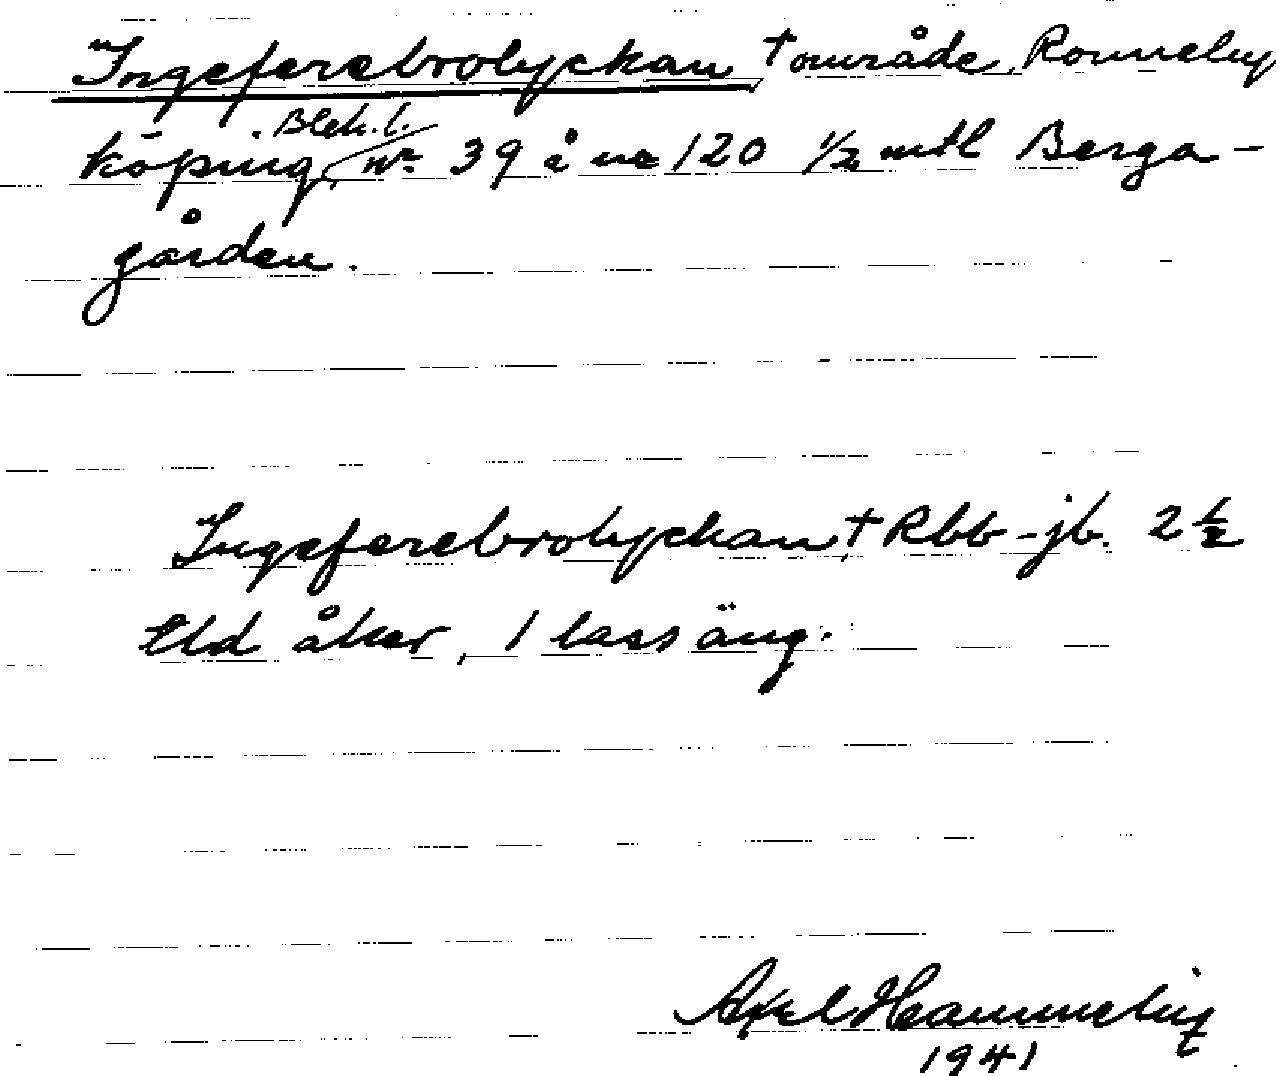 Ingeferebrolyckan † område, Ronneby
köping, Blek. l. nr 39 å nr 120 1/2 mtl Berga-
gården.
Ingeferebrolyckan † Rbb - jb. 2 1/2
tld åker, 1 lass äng.
Axel
1941